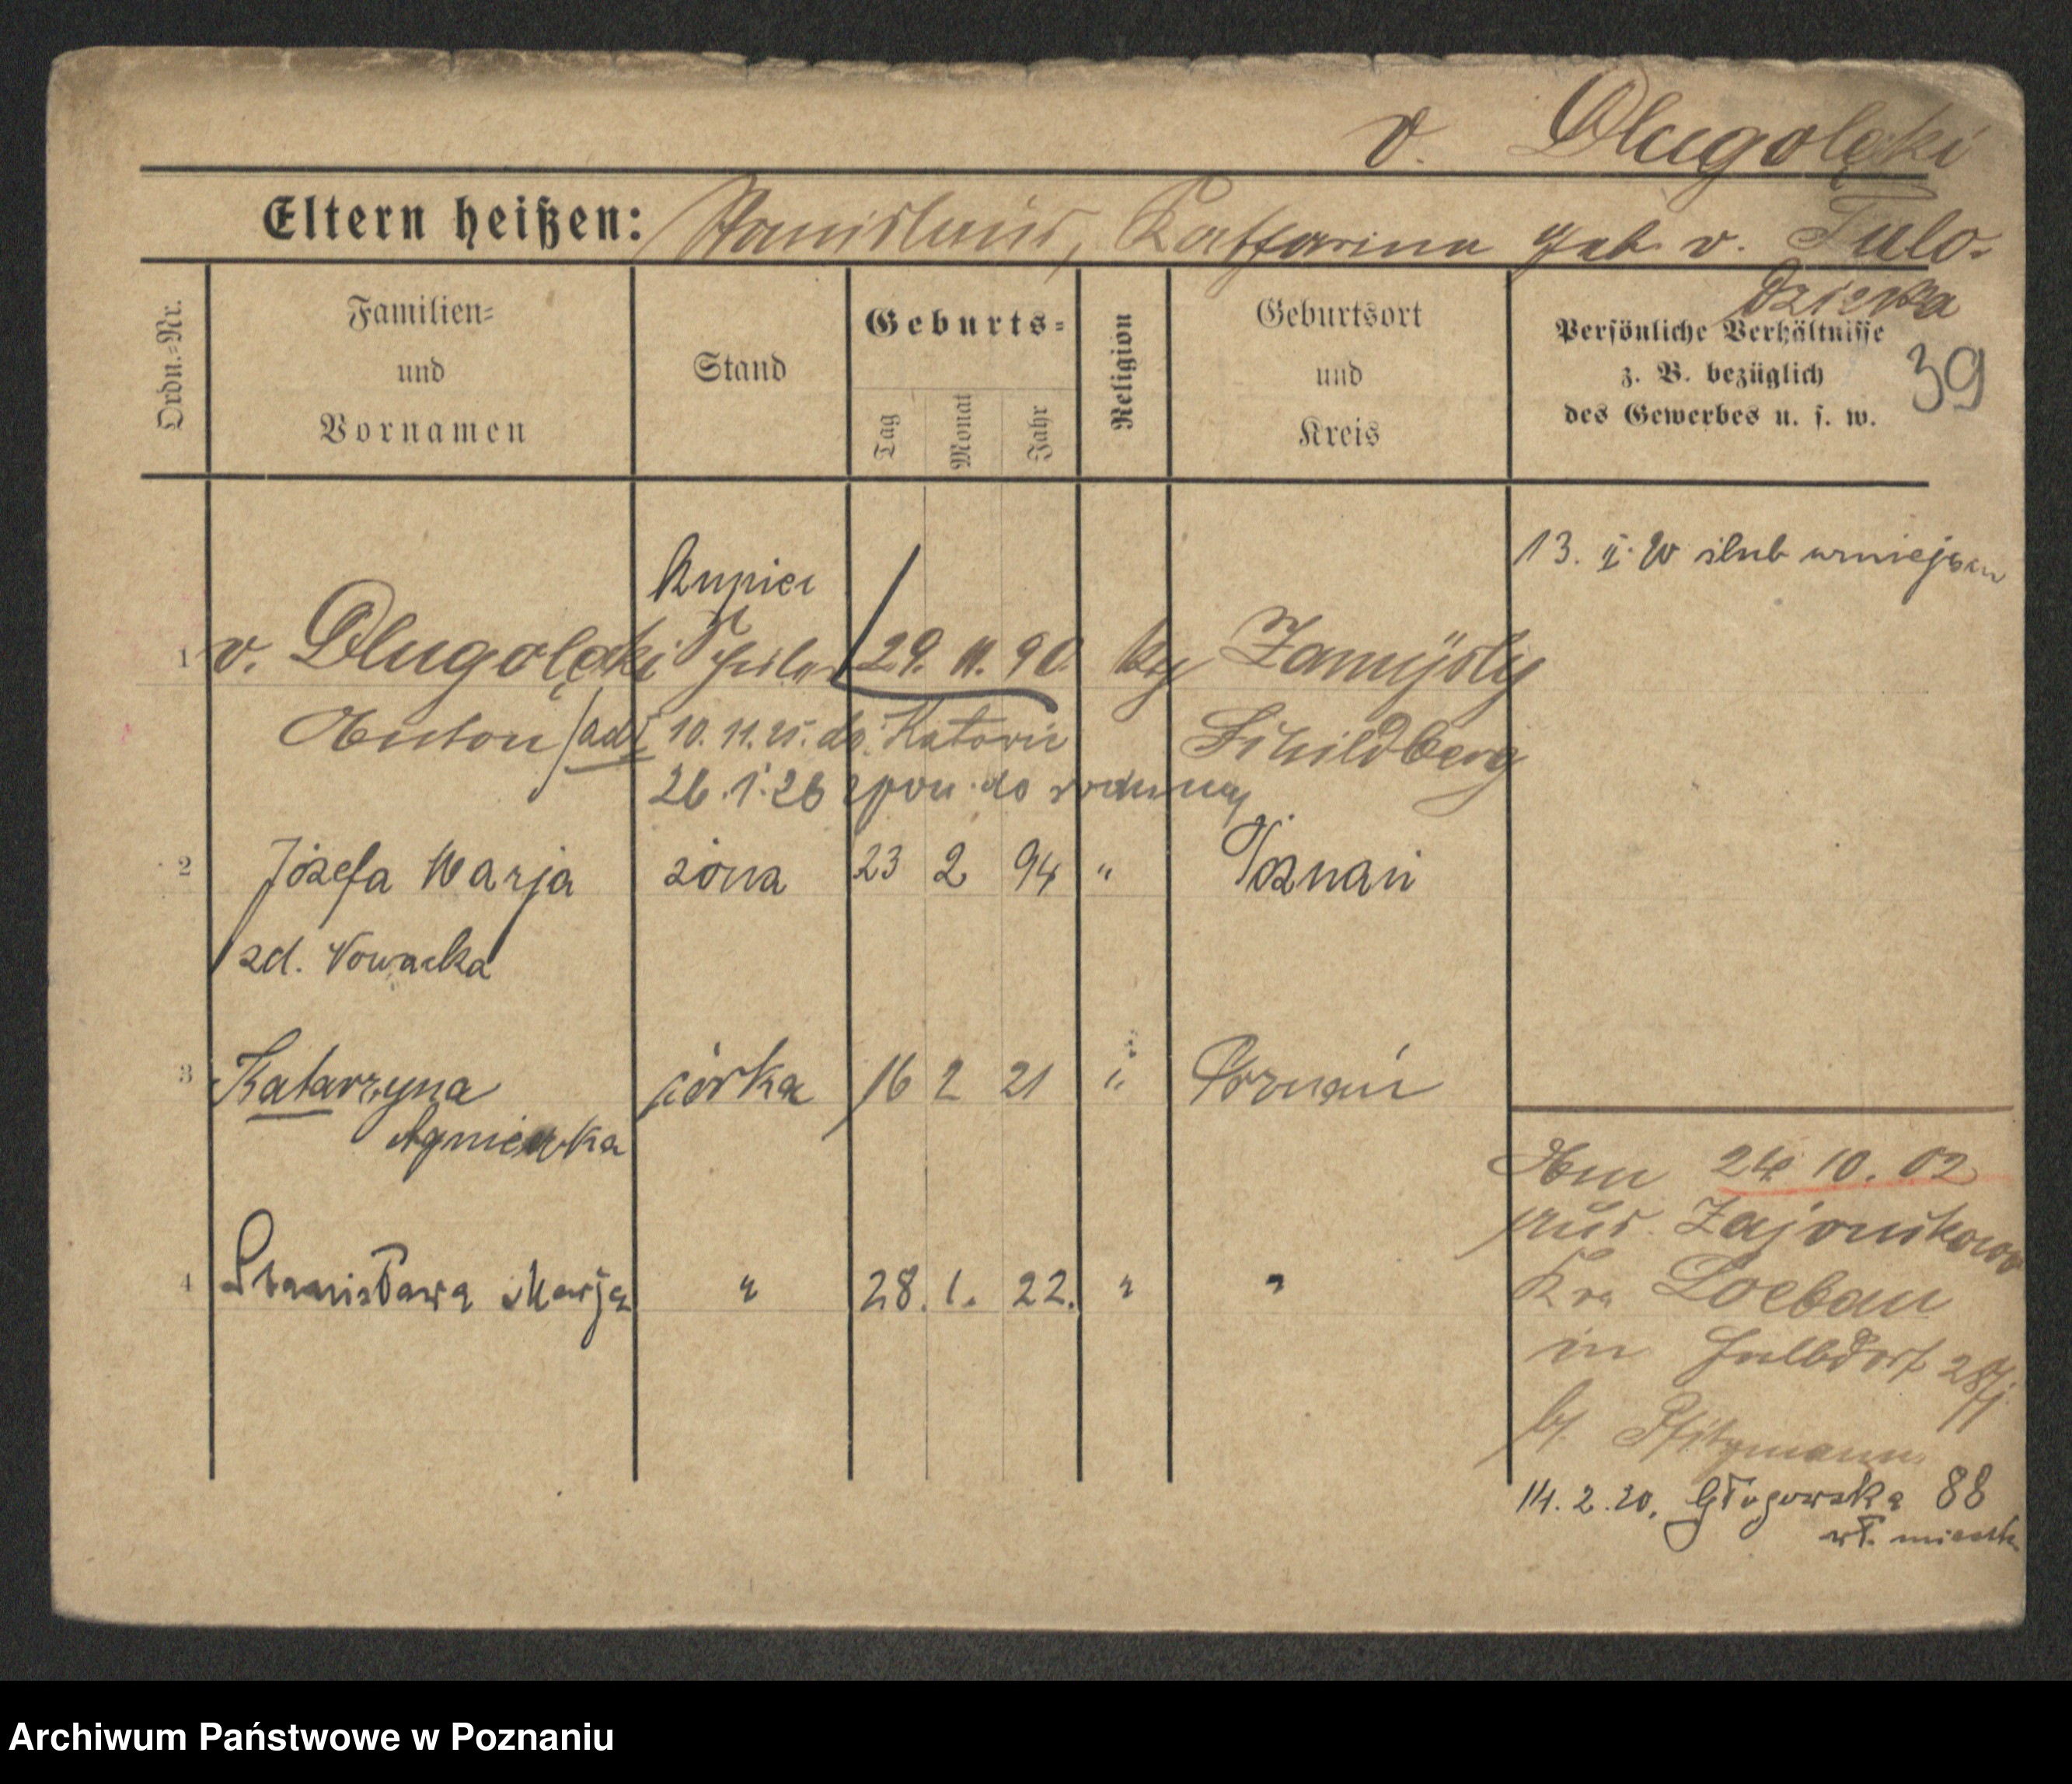 v. Dlugolęcki
Eltern heißen: Stanislaus, Katharina geb. v. Tulo-
dziecka
Ordn.-Nr.
Familien-
und
Vornamen
Stand
Geburts-
Tag
Monat
Jahr
Religion
Geburtsort
und
Kreis
Persönliche Verhältnisse
z. B. bezüglich
des Gewerbes u. s. w.
39
13. II. 20 ślub w miejscu
kupiec
1 v. Dlugolęcki Schüler 29. 11. 90. kg Zamÿsly
Anton /adl 10. 11. 25. do Katowic Schildberg
26. 1. 26 spow. do rodziny
2 Józefa Marja żona 23 2 94 " Poznań
zd. Nowacka
3 Katarzyna córka 16 2 21 " Poznań
Agnieszka
4 Stanisława Marja " 28. 1. 22. " "
Am 24 10. 02
aus Zajonskowo
Kr. Loebau
in Halbdorf 28
b/ Pfitzmann
14. 2. 20. Głogowska 88
wł. mieszk.
Archiwum Państwowe w Poznaniu